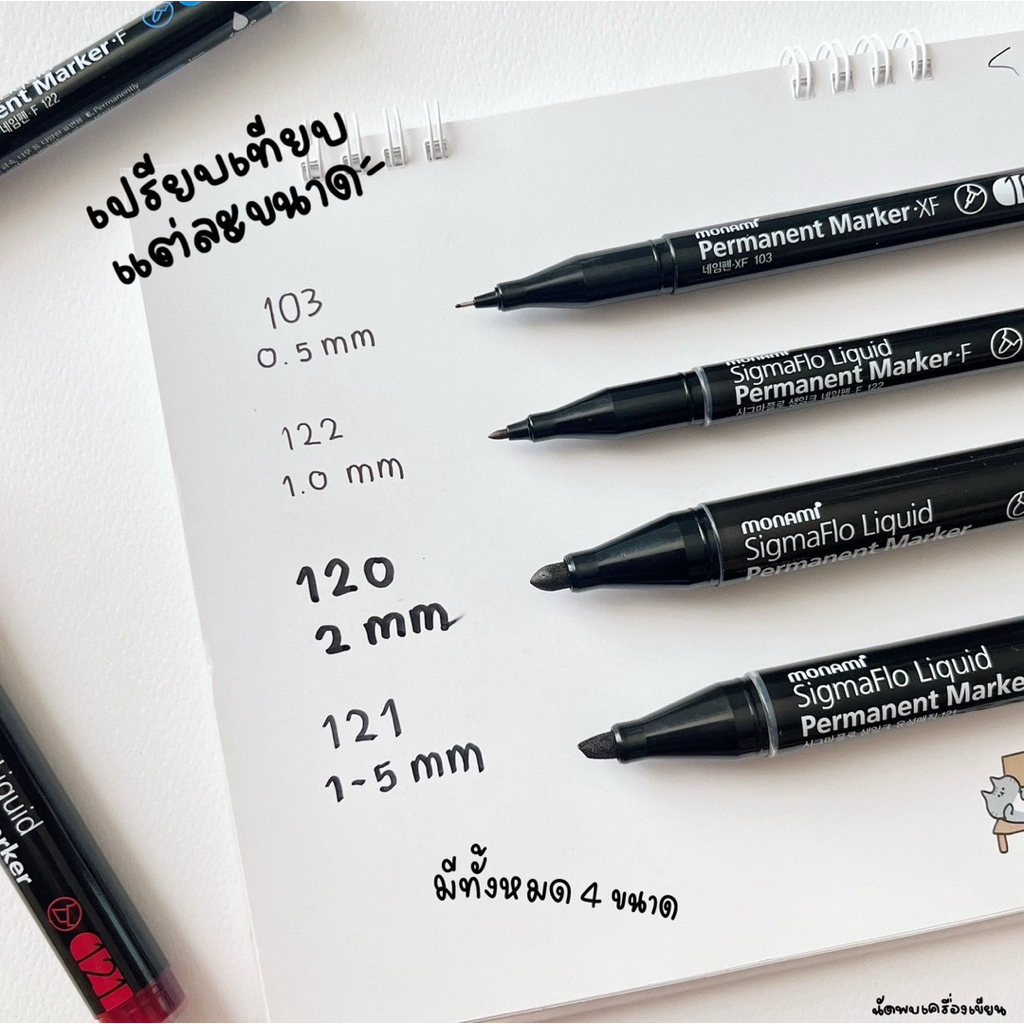 Marker·F
네임펜·F 122
Permanently
เปรียบเทียบ
แต่ละขนาด
monami
Permanent Marker·XF
네임펜·XF 103
103
0.5 mm
SigmaFlo Liquid
Permanent Marker·F
시그마플로 생잉크 네임펜 F 122
122
1.0 mm
monami
SigmaFlo Liquid
Permanent Marker
120
2 mm
monami
SigmaFlo Liquid
Permanent Marke
시그마플로 생잉크 유성매직 121
121
1-5 mm
มีทั้งหมด 4 ขนาด
121
นัดพบเครื่องเขียน